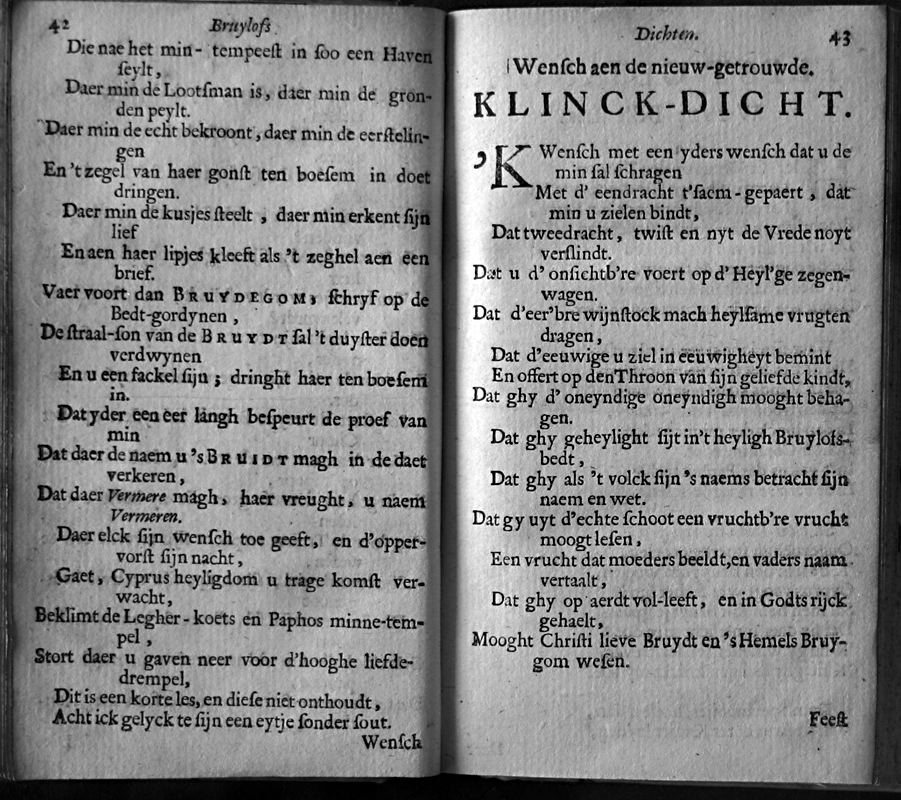 42 Bruylofs
Die nae het min- tempeeſt in ſoo een Haven
ſeylt,
Daer min de Lootſman is, daer min de gron-
den peylt.
Daer min de echt bekroont, daer min de eerſtelin-
gen
En 't zegel van haer gonſt ten boeſem in doet
dringen.
Daer min de kusjes ſteelt, daer min erkent ſijn
lief
En aen haer lipjes kleeft als 't zeghel aen een
brief.
Vaer voort dan BRUYDEGOM, ſchryf op de
Bedt-gordynen,
De ſtraal-ſon van de BRUYDT ſal 't duyſter doen
verdwynen
En u een fackel ſijn; dringht haer ten boeſem
in.
Dat yder een eer langh beſpeurt de proef van
min
Dat daer de naem u 's BRUIDT magh in de daet
verkeren,
Dat daer Vermere magh, haer vreught, u naem
Vermeren.
Daer elck ſijn wenſch toe geeft, en d'opper-
vorſt ſijn nacht,
Gaet, Cyprus heyligdom u trage komſt ver-
wacht,
Beklimt de Legher-koets en Paphos minne-tem-
pel,
Stort daer u gaven neer voor d'hooghe liefde-
drempel,
Dit is een korte les, en dieſe niet onthoudt,
Acht ick gelyck te ſijn een eytje ſonder ſout.
Wenſch
Dichten. 43
Wenſch aen de nieuw-getrouwde.
KLINCK-DICHT.
'K Wenſch met een yders wenſch dat u de
min ſal ſchragen
Met d' eendracht t'ſaem-gepaert, dat
min u zielen bindt,
Dat tweedracht, twiſt en nyt de Vrede noyt
verſlindt.
Dat u d' onſichtb're voert op d' Heyl'ge zegen-
wagen.
Dat d'eer'bre wijnſtock mach heylſame vrugten
dragen,
Dat d'eeuwige u ziel in eeuwigheyt bemint
En offert op den Throon van ſijn geliefde kindt,
Dat ghy d' oneyndige oneyndigh mooght beha-
gen.
Dat ghy geheylight ſijt in't heyligh Bruylofs-
bedt,
Dat ghy als 't volck ſijn 's naems betracht ſijn
naem en wet.
Dat gy uyt d'echte ſchoot een vruchtb're vrucht
moogt leſen,
Een vrucht dat moeders beeldt, en vaders naam
vertaalt,
Dat ghy op aerdt vol-leeft, en in Godts rijck
gehaelt,
Mooght Chriſti lieve Bruydt en 's Hemels Bruy-
gom weſen.
Feeſt